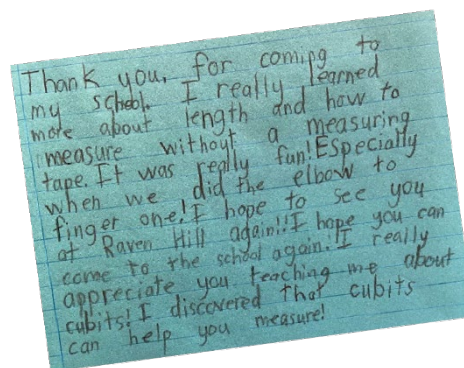 Thank you, for coming to
my school. I really learned
more about length and how to
measure without a measuring
tape. It was really fun! Especially
when we did the elbow to
finger one! I hope to see you
at Raven Hill again!! I hope you can
come to the school again! I really
appreciate you teaching me about
cubits! I discovered that cubits
can help you measure!